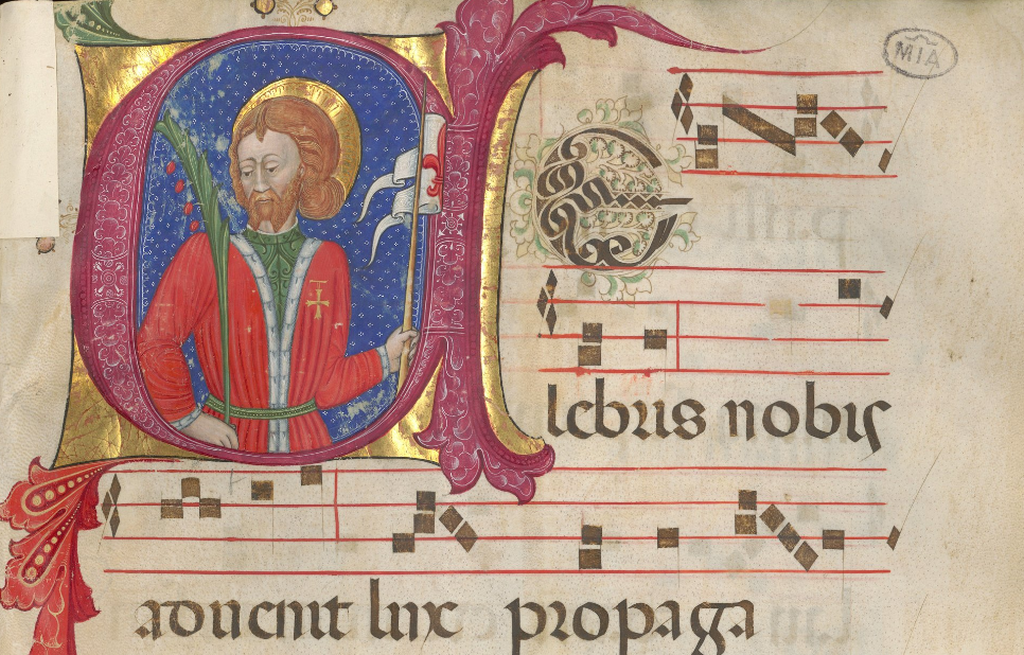 MIA
CE
lebris nobis
aduenit lux propaga